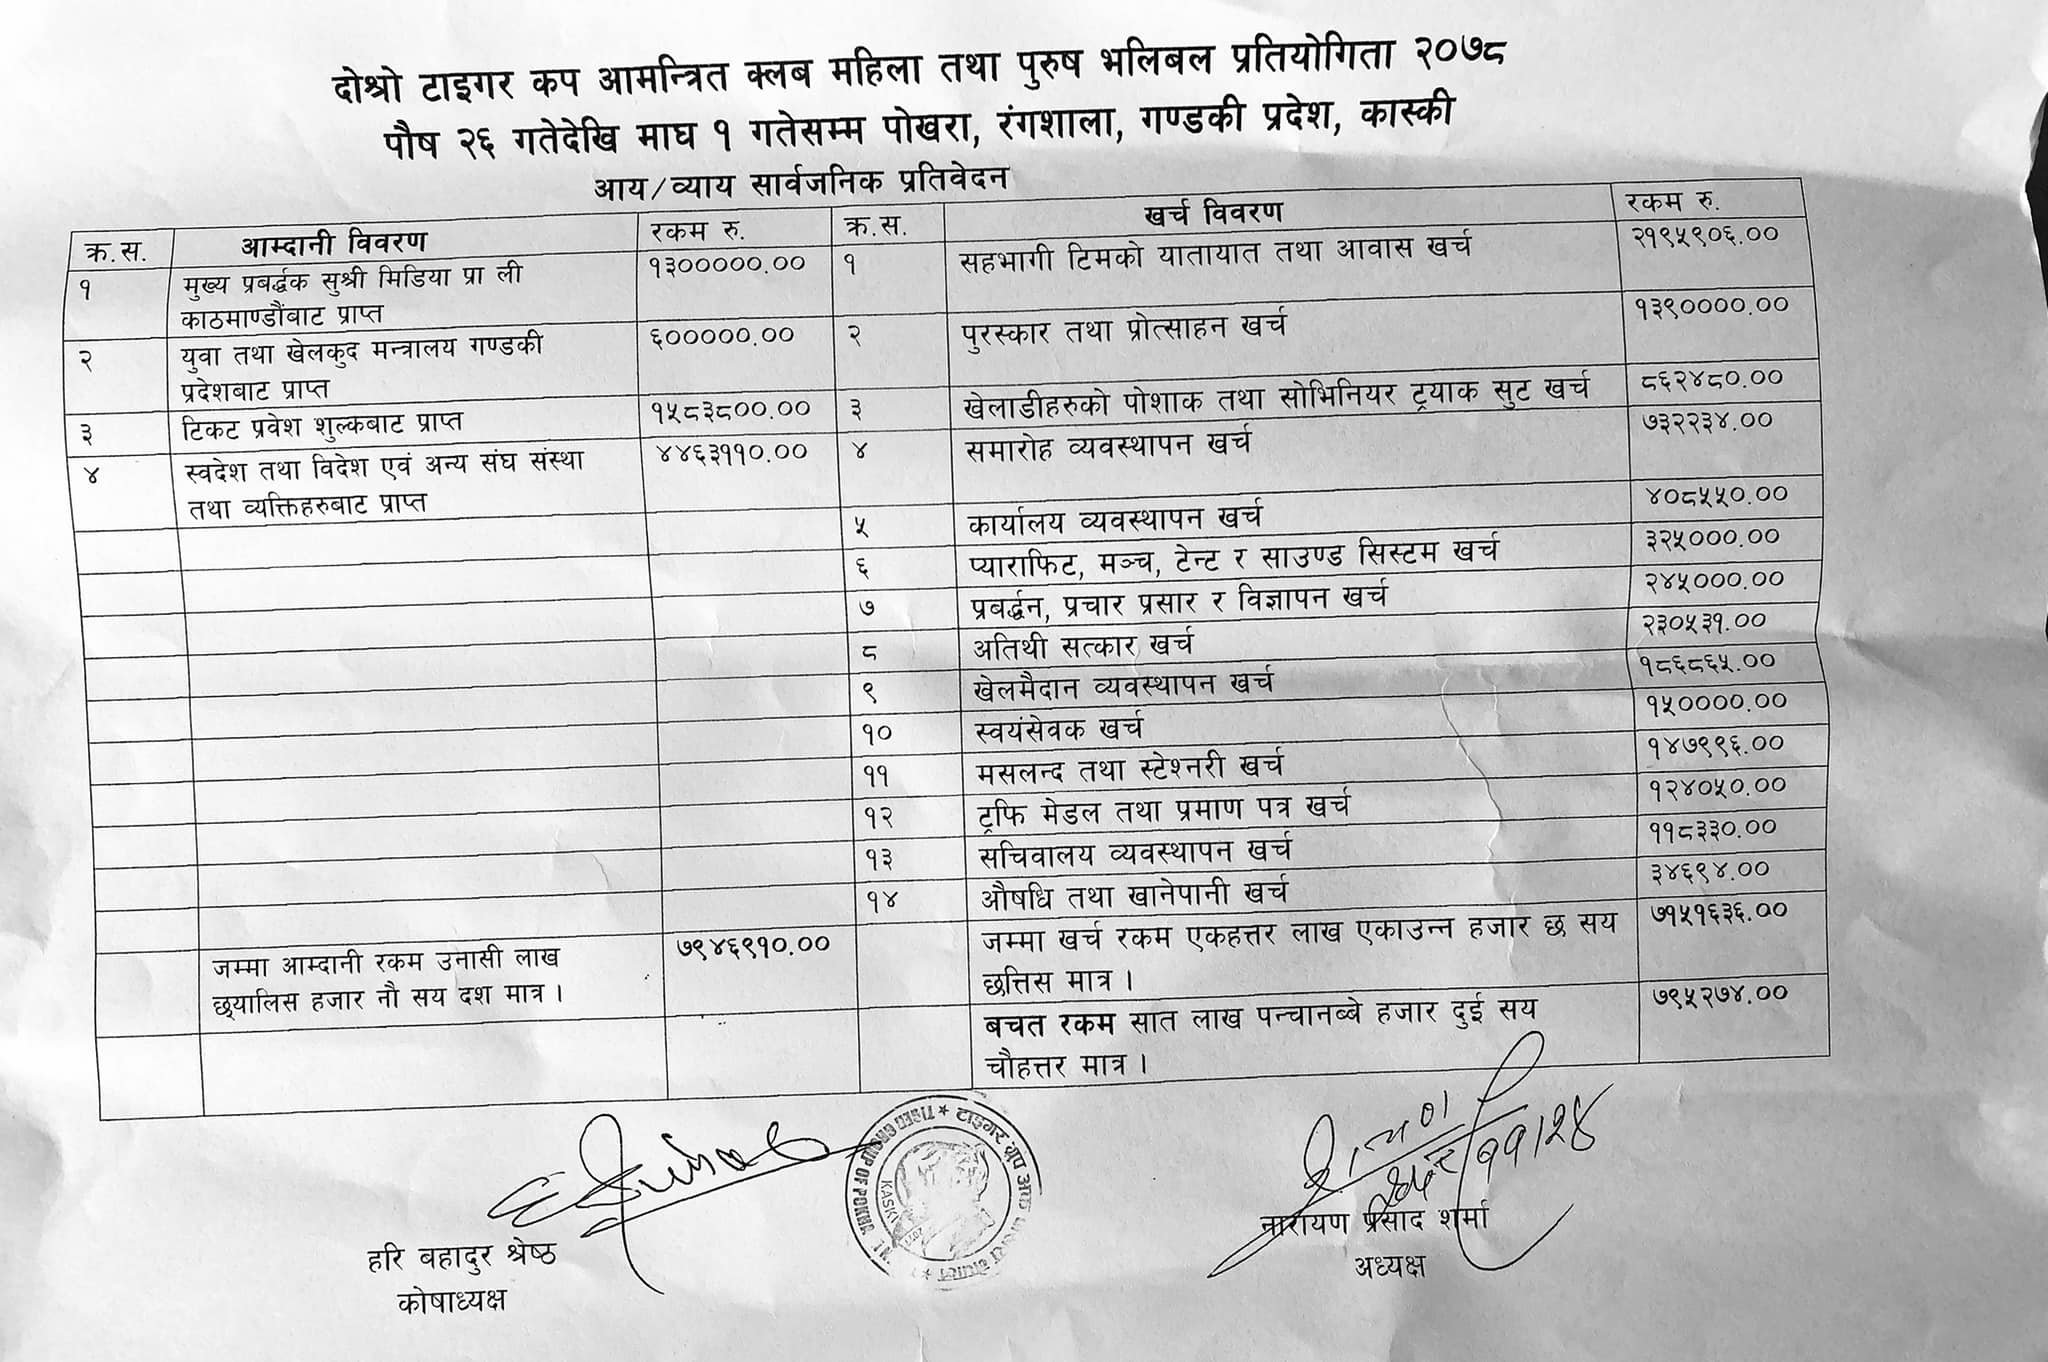 दोश्रो टाइगर कप आमन्त्रित क्लब महिला तथा पुरुष भलिबल प्रतियोगिता २०७८
पौष २६ गतेदेखि माघ १ गतेसम्म पोखरा, रंगशाला, गण्डकी प्रदेश, कास्की
आय/व्याय सार्वजनिक प्रतिवेदन
क्र.स. आम्दानी विवरण रकम रु. क्र.स. खर्च विवरण रकम रु.
१ मुख्य प्रबर्द्धक सुश्री मिडिया प्रा ली १३०००००.०० १ सहभागी टिमको यातायात तथा आवास खर्च २१९५९०६.००
काठमाण्डौंबाट प्राप्त
२ युवा तथा खेलकुद मन्त्रालय गण्डकी ६०००००.०० २ पुरस्कार तथा प्रोत्साहन खर्च १३९००००.००
प्रदेशबाट प्राप्त
३ टिकट प्रवेश शुल्कबाट प्राप्त १५८३८००.०० ३ खेलाडीहरुको पोशाक तथा सोभिनियर ट्रयाक सुट खर्च ८६२४८०.००
४ स्वदेश तथा विदेश एवं अन्य संघ संस्था ४४६३११०.०० ४ समारोह व्यवस्थापन खर्च ७३२२३४.००
तथा व्यक्तिहरुबाट प्राप्त
५ कार्यालय व्यवस्थापन खर्च ४०८५५०.००
६ प्याराफिट, मञ्च, टेन्ट र साउण्ड सिस्टम खर्च ३२५०००.००
७ प्रबर्द्धन, प्रचार प्रसार र विज्ञापन खर्च २४५०००.००
८ अतिथी सत्कार खर्च २३०५३१.००
९ खेलमैदान व्यवस्थापन खर्च १८६८६५.००
१० स्वयंसेवक खर्च १५००००.००
११ मसलन्द तथा स्टेश्नरी खर्च १४७९९६.००
१२ ट्रफि मेडल तथा प्रमाण पत्र खर्च १२४०५०.००
१३ सचिवालय व्यवस्थापन खर्च ११८३३०.००
१४ औषधि तथा खानेपानी खर्च ३४६९४.००
जम्मा आम्दानी रकम उनासी लाख ७९४६९१०.०० जम्मा खर्च रकम एकहत्तर लाख एकाउन्न हजार छ सय ७१५१६३६.००
छ्यालिस हजार नौ सय दश मात्र । छत्तिस मात्र ।
बचत रकम सात लाख पन्चानब्बे हजार दुई सय ७९५२७४.००
चौहत्तर मात्र ।
टाइगर ग्रुप अफ
TIGER GROUP OF POKHARA
KASKI
हरि बहादुर श्रेष्ठ
कोषाध्यक्ष
नारायण प्रसाद शर्मा
अध्यक्ष